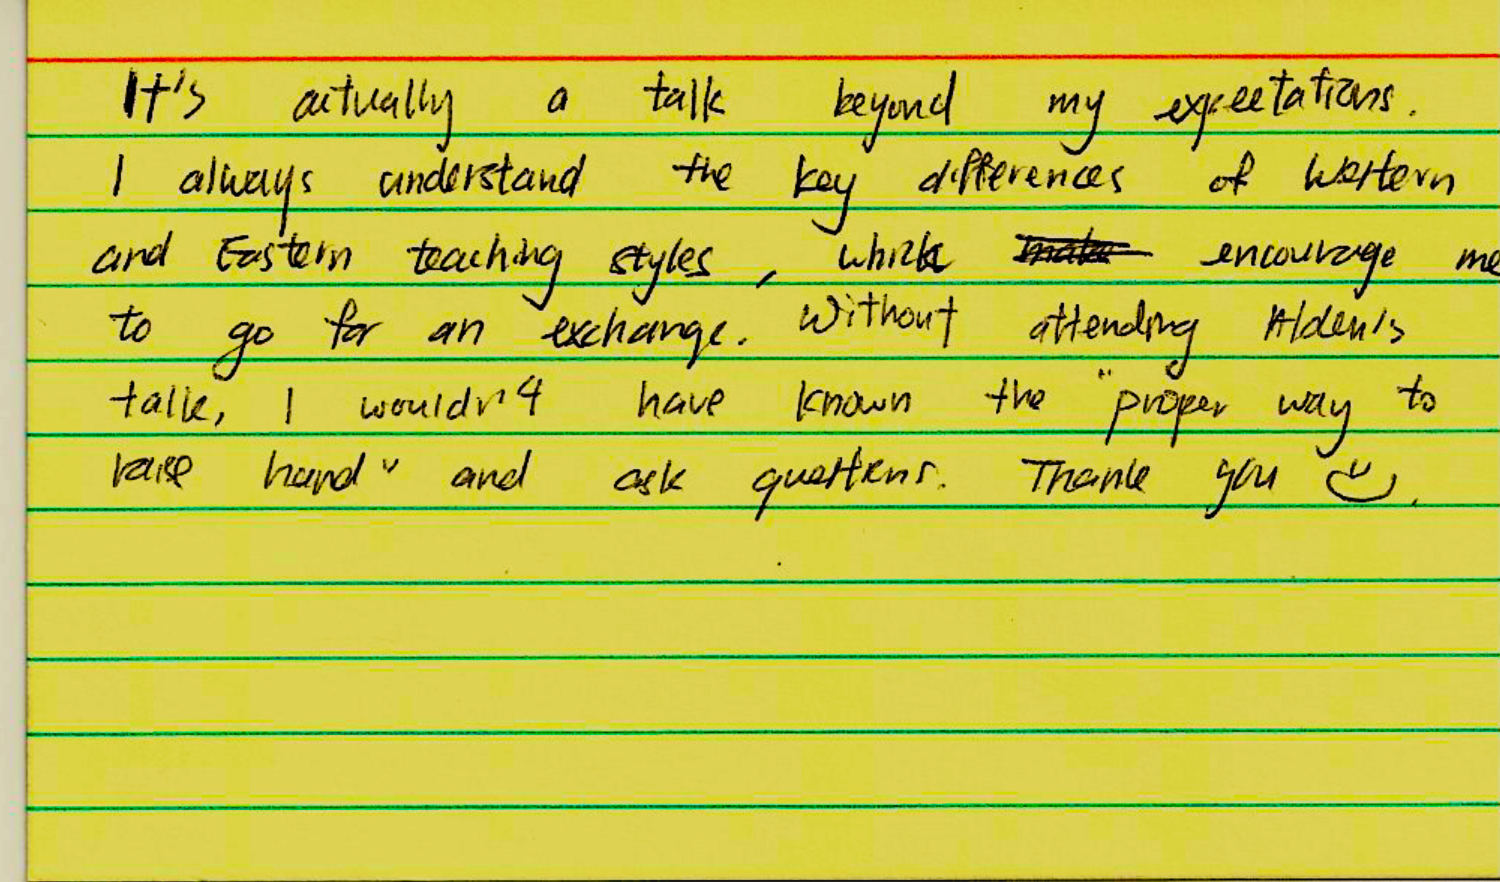 It's actually a talk beyond my expectations.
I always understand the key differences of Western
and Eastern teaching styles, which encourage me
to go for an exchange. Without attending Alden's
talk, I wouldn't have known the "proper way to
raise hand" and ask questions. Thank you